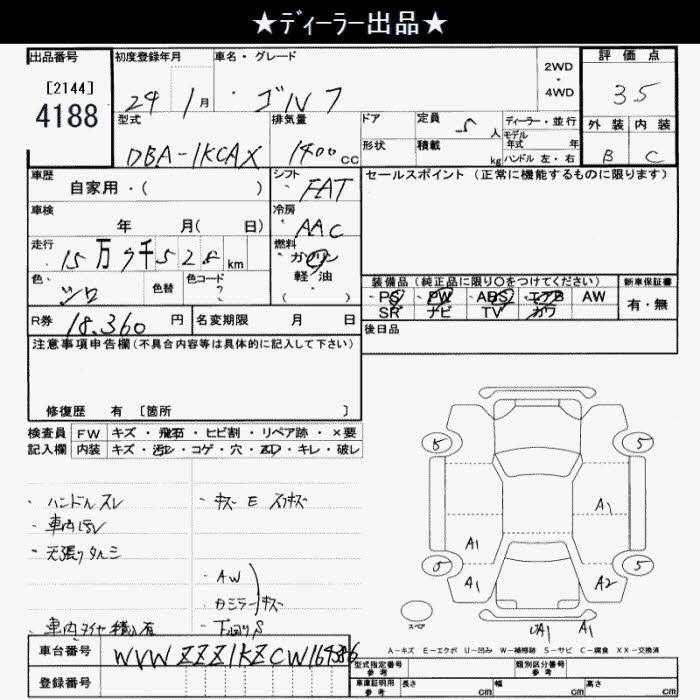 ★ディーラー出品★
出品番号
[2144]
4188
初度登録年月
24 1月
車名・グレード
・ゴルフ
2WD
・
4WD
評価点
35
外装 内装
B C
型式
DBA-1KCAX
排気量
1400cc
ドア
形状
定員 5人
積載 kg
ディーラー・並行
モデル年式 年
ハンドル 左・右
車歴
自家用・( )
シフト
FAT
車検
年 月( 日)
冷房
AAC
走行
15万7千528km
燃料
ガソリン
軽・油
( )
色
シロ
色替
色コード
?
セールスポイント(正常に機能するものに限ります)
装備品(純正品に限り〇をつけてください)
PS PW ABS エアB AW
SR ナビ TV カワ
新車保証書
有・無
R券
18.360円
名変期限 月 日
後日品
注意事項申告欄(不具合内容等は具体的に記入して下さい)
修復歴 有 〔箇所 〕
検査員 FW キズ・飛石・ヒビ割・リペア跡・×要
記入欄 内装 キズ・汚レ・コゲ・穴・スレ・キレ・破レ
・ハンドルスレ
・車内
・天張りタルミ
・車内タイヤ積込有
・キズ E スリキズ
・AW
・カミラーキズ
・下回りS
5
5
5
5
A1
A1
A1
A2
スペア
UA1 A1
A-キズ E-エクボ U-凹み W-補修跡 S-サビ C-腐食 XX-交換済
車台番号
WVWZZZ1KZCW164386
登録番号
型式指定番号
参考
類別区分番号
参考
車庫証明用
参考
長さ cm
幅 cm
高さ cm